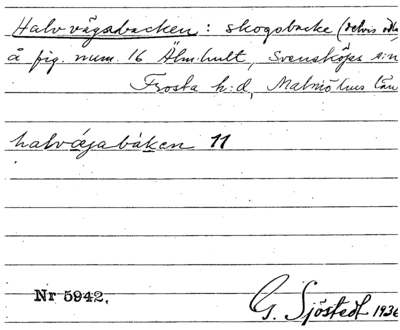 Halvvägabacken : skogsbacke (delvis
å fig. num. 16 Älmhult, Svensköps s:n
Frosta h:d, Malmöhus län
halvǽjabaken 11
Nr 5942.
G. Sjöstedt 1936